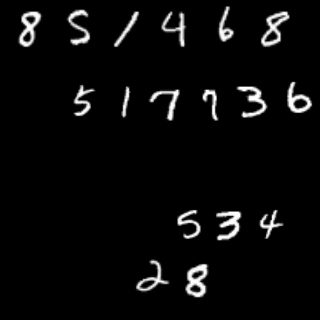 851468
517736
534
28